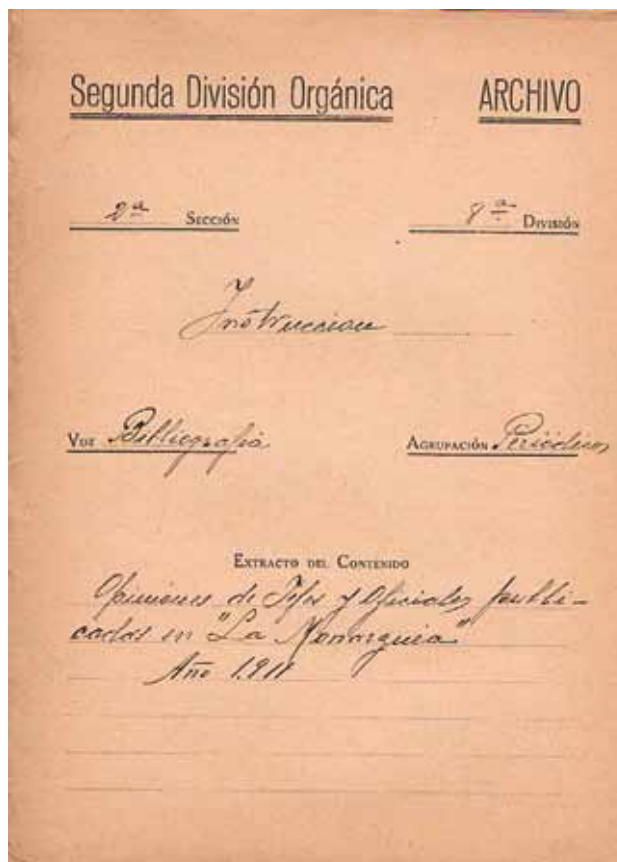 Segunda División Orgánica ARCHIVO
2ª SECCIÓN 8ª DIVISIÓN
Instruccion
VOZ Bibliografia AGRUPACIÓN Periódicos
EXTRACTO DEL CONTENIDO
Opiniones de Jefes y Oficiales publi-
cadas en "La Monarquia"
Año 1.911